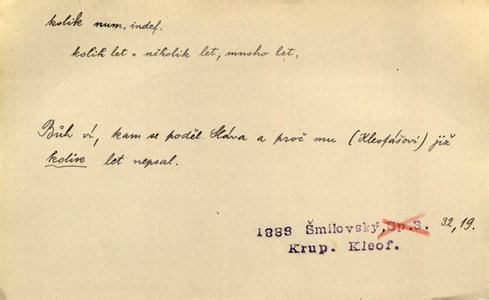 kolik num. indef.
kolik let = několik let, mnoho let.
Bůh ví, kam se poděl Sláva a proč mu (Kleofášovi) již
kolik let nepsal.
1888 Šmilovský, Sp.3. 32, 19.
Krup. Kleof.